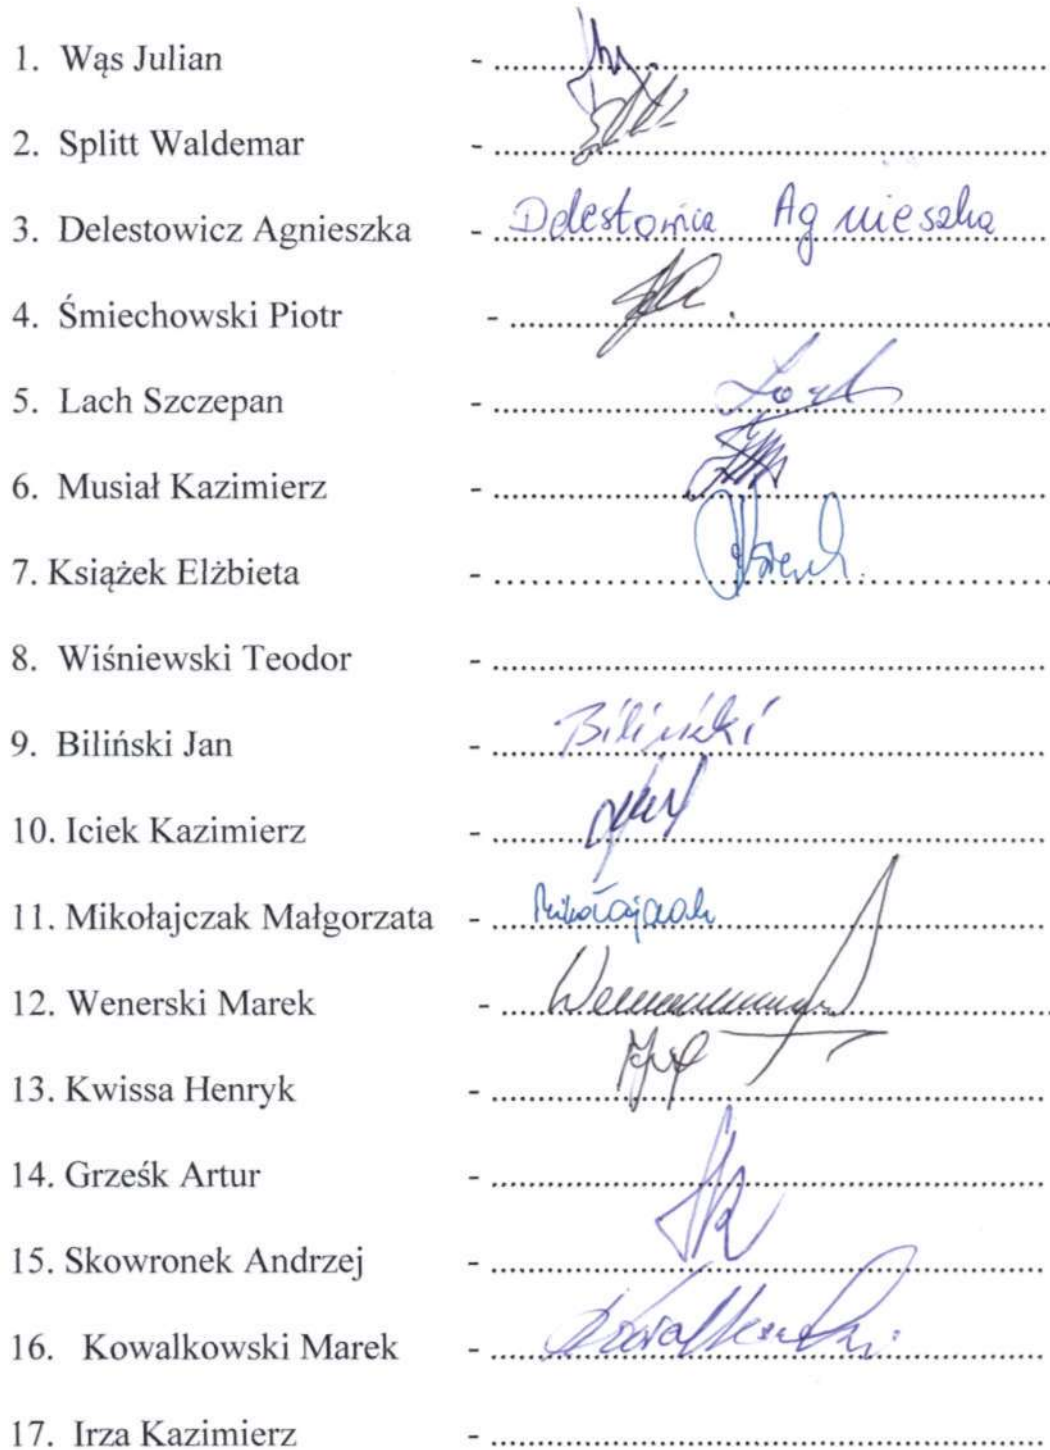 1. Wąs Julian - ..........
2. Splitt Waldemar - ..........
3. Delestowicz Agnieszka - .......... Delestowicz Agnieszka
4. Śmiechowski Piotr - ..........
5. Lach Szczepan - .......... Lach
6. Musiał Kazimierz - ..........
7. Książek Elżbieta - ..........
8. Wiśniewski Teodor - ..........
9. Biliński Jan - .......... Biliński
10. Iciek Kazimierz - ..........
11. Mikołajczak Małgorzata - .......... Mikołajczak
12. Wenerski Marek - ..........
13. Kwissa Henryk - ..........
14. Grześk Artur - ..........
15. Skowronek Andrzej - ..........
16. Kowalkowski Marek - .......... Kowalkowski
17. Irza Kazimierz - ..........